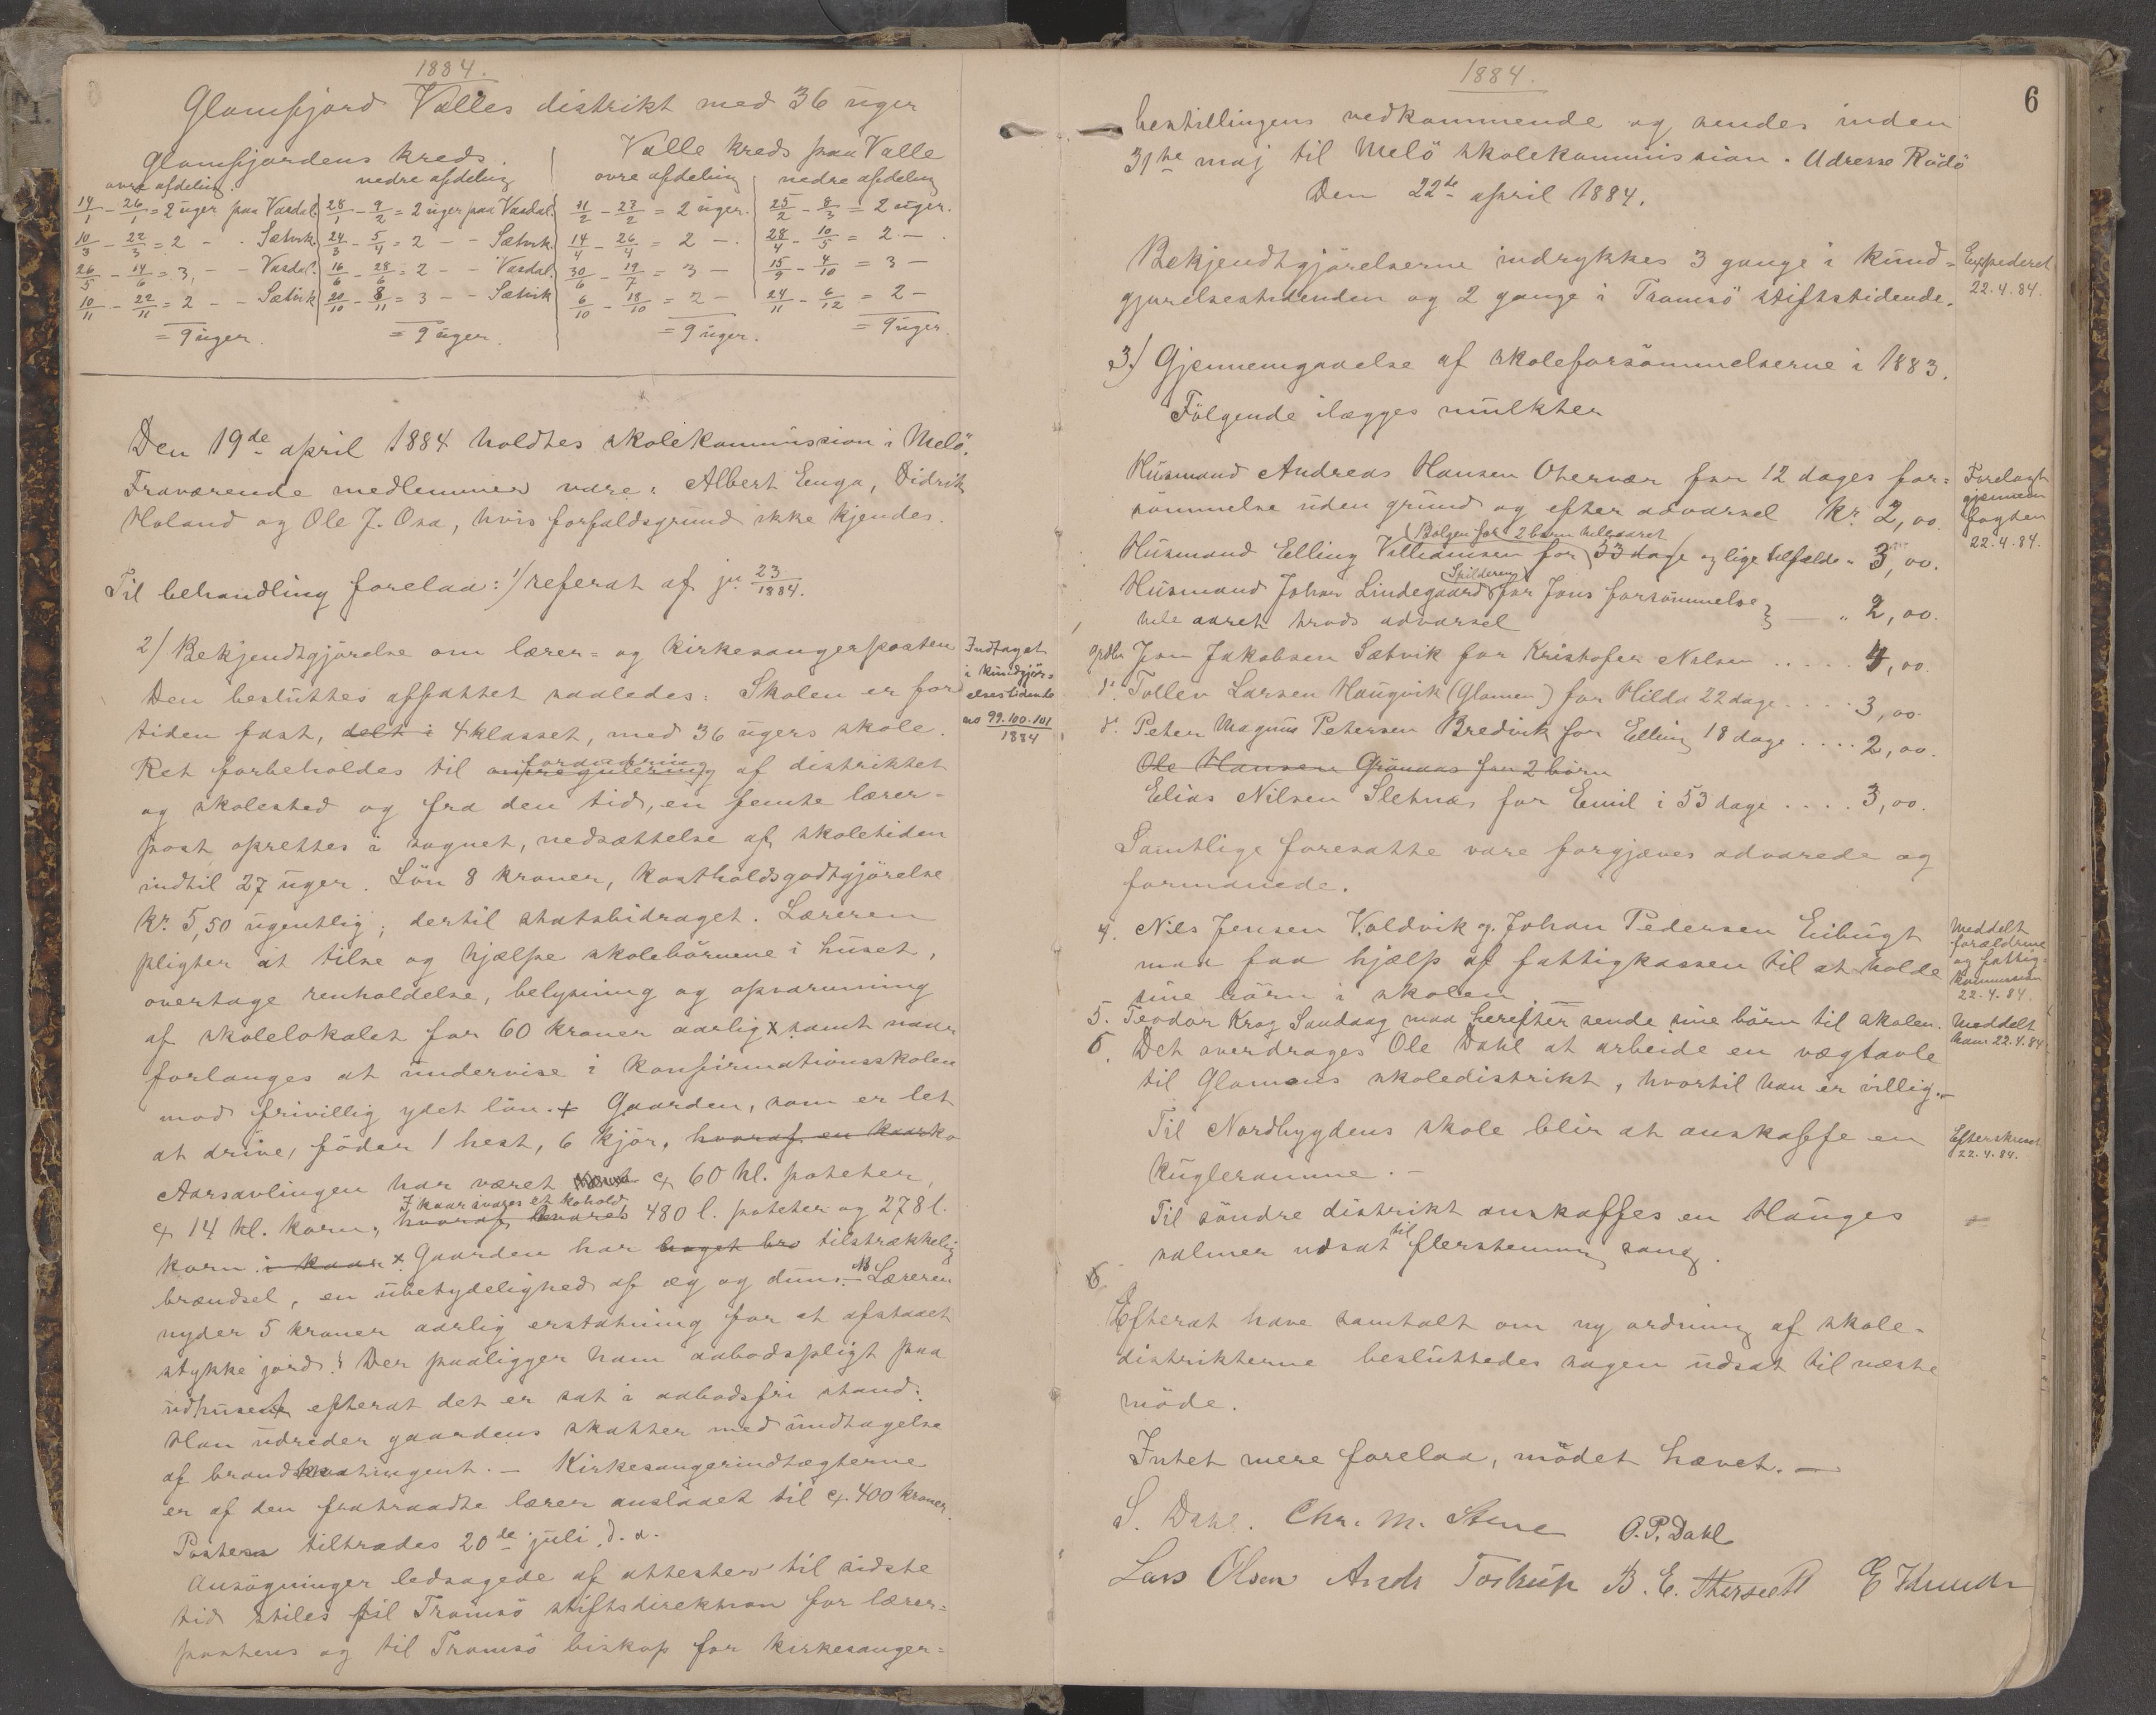 1884.
Glomfjord Valles distrikt med 36 uger
Glomfjordens kreds.
Valle kreds paa Valle
øvre afdeling.
nedre afdeling
øvre afdeling
nedre afdeling
14/1 - 26/1 = 2 uger paa Vasdal.
28/1 - 9/2 = 2 uger paa Vasdal.
11/2 - 23/2 = 2 uger.
25/2 - 8/3 = 2 uger.
10/3 - 22/3 = 2 - - Sætvik.
24/3 - 5/4 = 2 - - Sætvik.
14/4 - 26/4 = 2 -.
28/4 - 10/5 = 2 - .
26/5 - 14/6 = 3, - - Vasdal.
16/6 - 28/6 = 2 - - Vasdal.
30/6 - 19/7 = 3 -
15/9 - 4/10 = 3 -
10/11 - 22/11 = 2 - - Sætvik
20/10 - 8/11 = 3 - - Sætvik
6/10 - 18/10 = 2 -
24/11 - 6/12 = 2 -
= 9 uger.
= 9 uger.
= 9 uger.
= 9 uger.
Den 19de april 1884 holdtes skolekommission i Melö.
Fraværende medlemmer vare: Albert Enga, Didrik
Holand og Ole J. Osa, hvis forfaldsgrund ikke kjendes.
Til behandling forelaa: 1/ referat af jr. 23/1884.
2/ Bekjendtgjörelse om lærer- og kirkesangerposten
Den besluttes affattet saaledes: Skolen er for
tiden fast, delt i 4 klasset, med 36 ugers skole.
Indtaget
i kundgjör-
elsestidende
no 99.100.101
1884
forandring
Ret forbeholdes til omregulering af distriktet
og skolested og fra den tid, en femte lærer-
post oprettes i sognet, nedsættelse af skoletiden
indtil 27 uger. Lön 8 kroner, kostholdsgodtgjörelse
kr. 5,50 ugentlig; dertil statsbidraget. Læreren
pligter at tilse og hjælpe skolebörnene i huset,
overtage renholdelse, belysning og opvarmning
af skolelokalet for 60 kroner aarlig x samt naar
forlanges at undervise i konfirmationsskolen
mod frivillig ydet lön. + Gaarden, som er let
at drive, föder 1 hest, 6 kjör, hvoraf en kaarko
Aarsavlingen har været ca 60 hl. poteter,
I kaar svares et kohold
ca 14 hl. korn, hvoraf svares 480 l. poteter og 278 l.
korn i kaar x. Gaarden har noget bro tilstrækkelig
brændsel, en ubetydelighed af æg og duun. NB Læreren
nyder 5 kroner aarlig erstatning for et afstaaet
stykke jord. Der paaligger ham aabodspligt paa
udhuset efterat det er sat i aabodsfri stand.
Han udreder gaardens skatter med undtagelse
af brandkontingent. — Kirkesangerindtægterne
er af den fratraadte lærer anslaaet til ca. 400 kroner.
Posten tiltrædes 20de juli d. a.
Ansögninger ledsagede af attester til sidste
tid stiles til Tromsö stiftsdirektion for lærer-
postens og til Tromsö biskop for kirkesanger-
1884.
6
bestillingens vedkommende og sendes inden
31te maj til Melö skolekommission. Adresse Rödö
Den 22de april 1884.
Bekjendtgjörelserne indrykkes 3 gange i kund-
gjörelsestidenden og 2 gange i Tromsö stiftstidende.
Expederet
22.4.84.
3/ Gjennemgaaelse af skoleforsömmelserne i 1883.
Fölgende ilægges mulkter
Husmand Andreas Hansen Oternær for 12 dages for-
sömmelse uden grund og efter advarsel kr. 2,00.
Forelagt
gjennem
fogden
22.4.84.
(Bolgen for 2 børn heleaaret
Husmand Elling Villiamsen for 53 dage og lige tilfælde " 3,00.
Spilderen
Husmand Johan Lindegaard for Jons forsömmelse
hele aaret trods advarsel — " 2,00.
Gdbr Jon Jakobsen Sætvik for Kristofer Nilsen ..... 4,00.
do Tollev Larsen Haugvik (Glomen) for Hilda 22 dage .... 3,00.
do Peter Magnus Petersen Bredvik for Elling 18 dage .... 2,00.
Ole Hansen Grönaas for 2 börn
Elias Nilsen Sletnæs for Emil i 53 dage .... 3,00.
Samtlige foresatte vare forgjæves advarede og
formanede.
4. Nils Jensen Valdvik og Johan Pedersen Eibugt
maa faa hjælp af fattigkassen til at holde
sine börn i skolen
Meddelt
forældrene
og fattig-
kommission
22.4.84.
5. Teodor Krog Sandaag maa herefter sende sine börn til skolen.
Meddelt
ham 22.4.84
6. Det overdrages Ole Dahl at arbeide en vægtavle
til Glomens skoledistrikt, hvortil han er villig.—
Til Nordbygdens skole blir at anskaffe en
kugleramme. —
Efterskrevet
22.4.84.
Til söndre distrikt anskaffes en Hauges
salmer udsat til flerstemmig sang.
6.
Efterat have samtalt om ny ordning af skole-
distrikterne besluttedes sagen udsat til næste
möde.
Intet mere forelaa, mödet hævet. —
S. Dahl. Chr. M. Stene O. P. Dahl
Lars Olsen Andr Tostrup B. E.